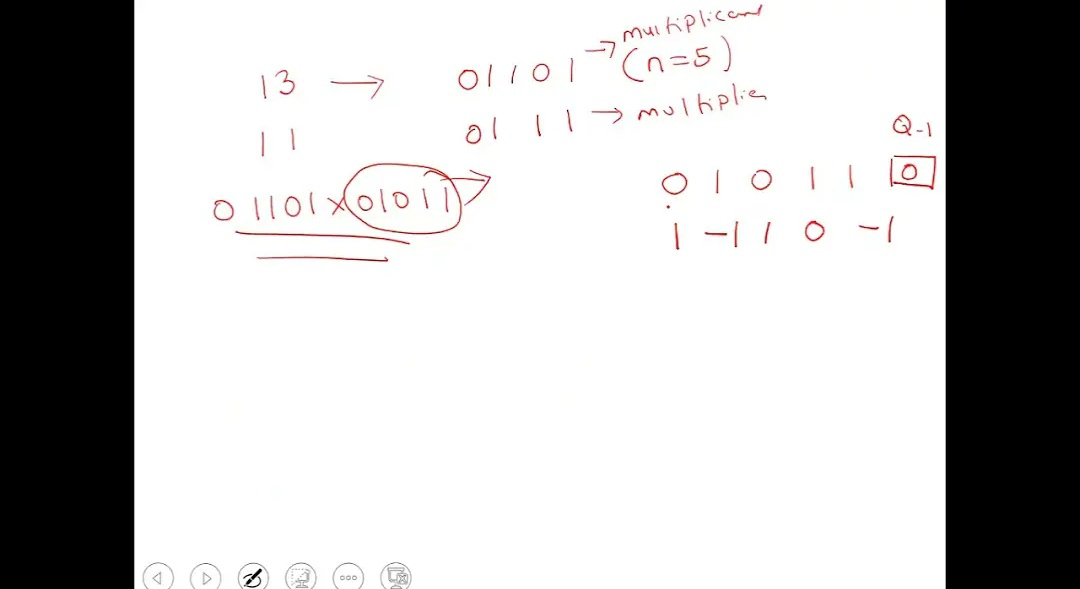 13 → 01101 → multiplicand
(n=5)
11 01 11 → multiplier
Q-1
01101 x 01011 →
0 1 0 1 1 0
1 -1 1 0 -1